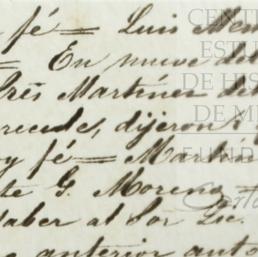 fé = Luis Men
= En nueve del
Prés Martínez del
precede, dijeron: q
oy fé = Martín
te G. Moreno =
saber al Sor. Lic.
e anterior auto
CENT
ESTU
DE HIS
DE M
FUND
Carlo